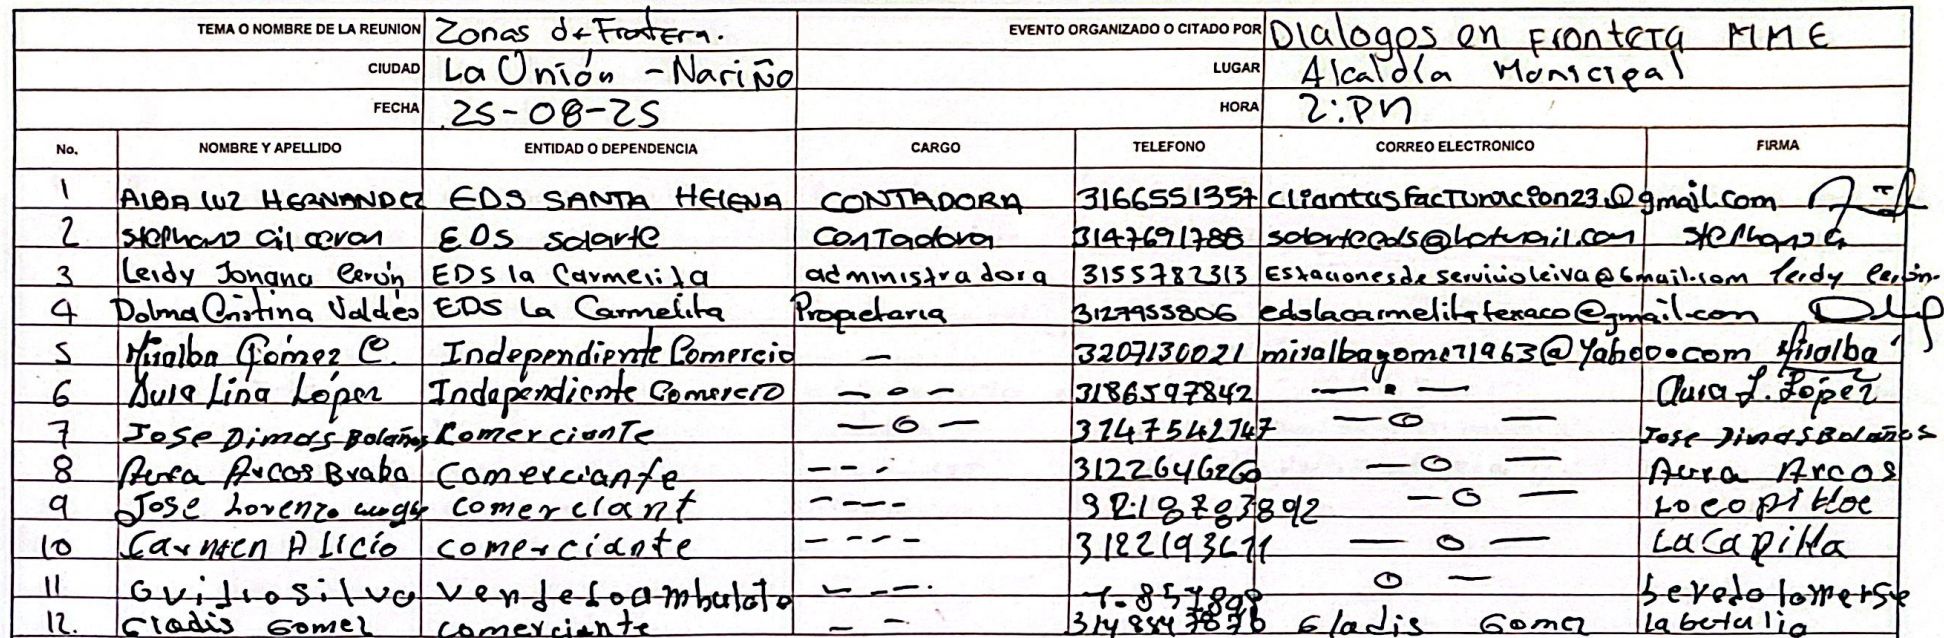 TEMA O NOMBRE DE LA REUNION Zonas de Frontera. EVENTO ORGANIZADO O CITADO POR Dialogos en Frontera MME
CIUDAD La Unión - Nariño LUGAR Alcaldía Municipal
FECHA 25-08-25 HORA 2:PM
No. NOMBRE Y APELLIDO ENTIDAD O DEPENDENCIA CARGO TELEFONO CORREO ELECTRONICO FIRMA
1 ALBA LUZ HERNANDEZ EDS SANTA HELENA CONTADORA 3166551357 cliantusfacturacion23@gmail.com
2 Stephano Gil ceron EDS solarte Contadora 3147691788 solarteeds@hotmail.com Stephano G
3 Leidy Johana Cerón EDS la Carmelita administradora 3155782313 Estacionesdeservicioleiva@Gmail.com leidy Cerón
4 Dolma Cristina Valdés EDS La Carmelita Propietaria 3127955806 edslacarmelitatexaco@gmail.com
5 Miralba Gómez C. Independiente Comercio — 3207130021 miralbagomez1963@Yahoo.com Miralba
6 Aura Lina López Independiente Comercio - - - 3186597842 — • — Aura L. López
7 Jose Dimas Bolaños Comerciante — o — 3147542747 — o — Jose Dimas Bolaños
8 Aura Arcos Braba Comerciante - - - 3122646260 — o — Aura Arcos
9 Jose Lorenzo comerciant - - - - 3218783892 — o —
10 Carmen Alicio comerciante - - - - 3122193671 — o — La Capilla
11 Guidio Silva Vendedo ambulato - - -. o —
12. Gladis Gomez comerciante - - Gladis Gomez la betulia